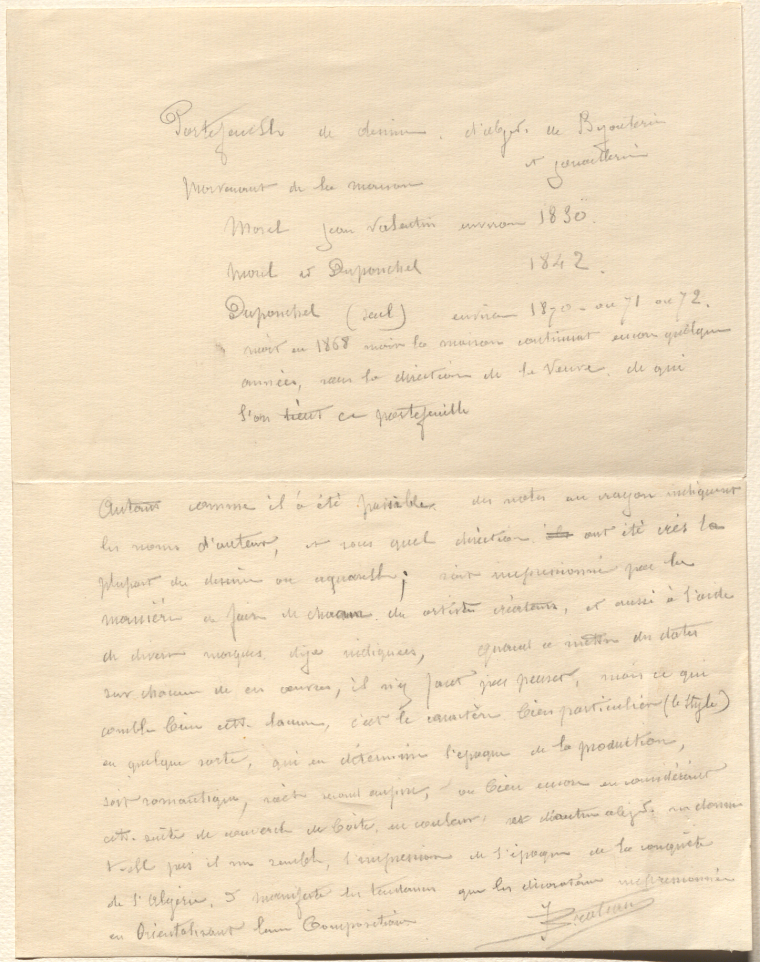 Portefeuille de dessins. d'objets de Bijouterie
et joaillerie
Provenant de la maison
Morel jean Valentin environ 1830.
Morel et Duponchel 1842.
Duponchel (seul) environ 1870 - ou 71 ou 72.
mort en 1868 mais la maison continuat encore quelques
années, sous la direction de la Veuve. de qui
l'on tient ce portefeuille
Autant comme il a été possible. des notes au crayon indiquent
les noms d'auteur, et sous quel direction ont été crées la
plupart des dessins ou aquarelle; soit impressionné par la
manière de faire de chacun des artistes créateurs, et aussi à l'aide
de divers marques déja indiquées, quand a mettre des dates
sur chacune de ces œuvres, il n'y faut pas penser, mais ce qui
comble bien cette lacune, c'est le caractère bien particulier (le style)
en quelque sorte, qui en détermine l'époque de la production,
soit romantique, soit second empire, ou bien encore en considérant
cette suite de couvercle de boîte, en couleur, et d'autres objets. ne donne
t-elle pas il me semble, l'impression de l'époque de la conquête
de l'Algérie, manifeste des tendances que les décorateurs impressionnés
en Orientalisant leurs Compositions
J Brateau